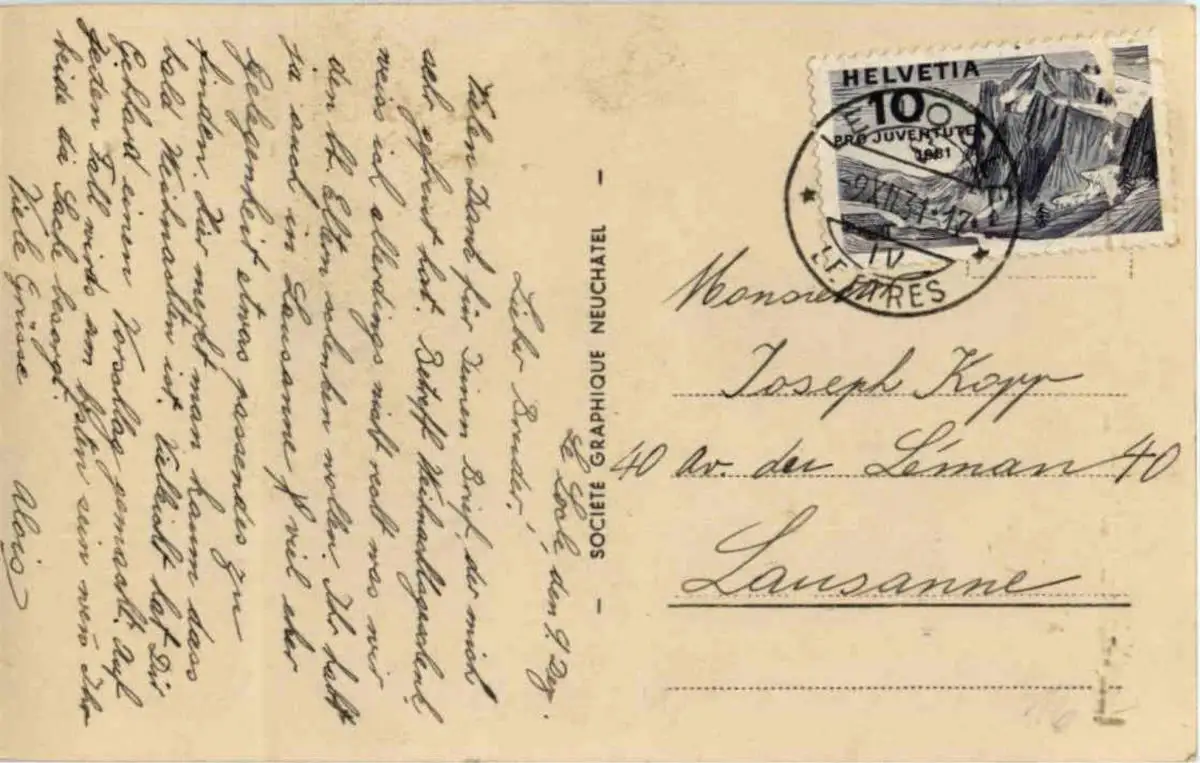 Le Locle, den 9. Dez.
Lieber Bruder!
Vielen Dank für Deinen Brief, der mich
sehr gefreut hat. Betreff Weihnachtsgeschenk
weiss ich allerdings nicht recht was wir
den lb. Eltern schenken wollen. Ihr habt
ja auch in Lausanne viel eher
Gelegenheit etwas passendes zu
finden. Hier merkt man kaum dass
bald Weihnachten ist. Vielleicht hat Dir
Gebhard einen Vorschlag gemacht. Auf
jeden Fall wirds am besten sein wenn Ihr
beide die Sache besorgt.
Viele Grüsse Alois
– SOCIÉTÉ GRAPHIQUE NEUCHÂTEL –
HELVETIA
10
PRO JUVENTUTE
1931
LE LOCLE
-9.XII.31.-17
IV
LETTRES
Monsieur
Joseph Kopp
40 Av. du Léman 40
Lausanne